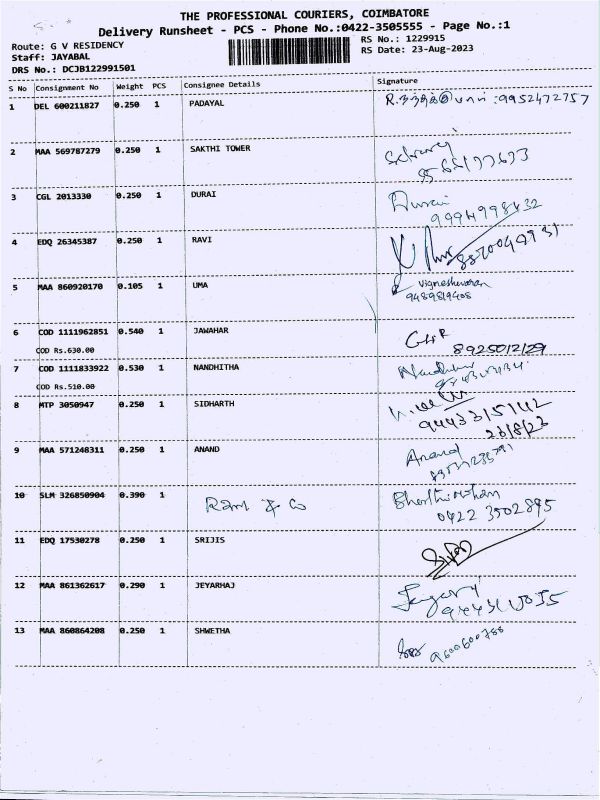 THE PROFESSIONAL COURIERS, COIMBATORE
Delivery Runsheet - PCS - Phone No.:0422-3505555 - Page No.:1
Route: G V RESIDENCY
RS No.: 1229915
Staff: JAYABAL
RS Date: 23-Aug-2023
DRS No.: DCJB122991501
S No Consignment No Weight PCS Consignee Details Signature
1 DEL 600211827 0.250 1 PADAYAL : 9952472757
2 MAA 569787279 0.250 1 SAKTHI TOWER
3 CGL 2013330 0.250 1 DURAI Durai
9994998432
4 EDQ 26345387 0.250 1 RAVI
5 MAA 860920170 0.105 1 UMA Vigneshwaran
9489819408
6 COD 1111962851 0.540 1 JAWAHAR
COD Rs.630.00
8925012129
7 COD 1111833922 0.530 1 NANDHITHA
COD Rs.510.00
8 MTP 3050947 0.250 1 SIDHARTH
9443315142
23/8/23
9 MAA 571248311 0.250 1 ANAND Anand
10 SLM 326850904 0.390 1 Ram & Co
0422 3502895
11 EDQ 17530278 0.250 1 SRIJIS
12 MAA 861362617 0.290 1 JEYARHAJ
13 MAA 860864208 0.250 1 SHWETHA 9600600788